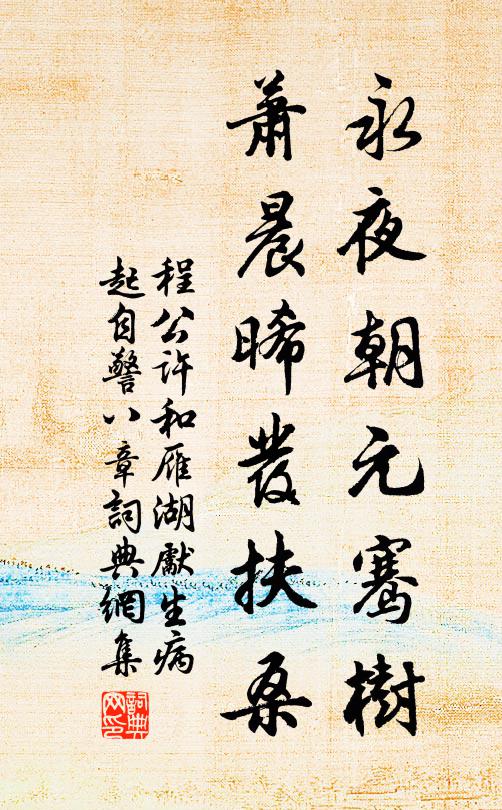 永夜朝元騫樹
蕭晨晞發扶桑
程公許和雁湖獻生病
起自警八章詞典網集
詞典網印